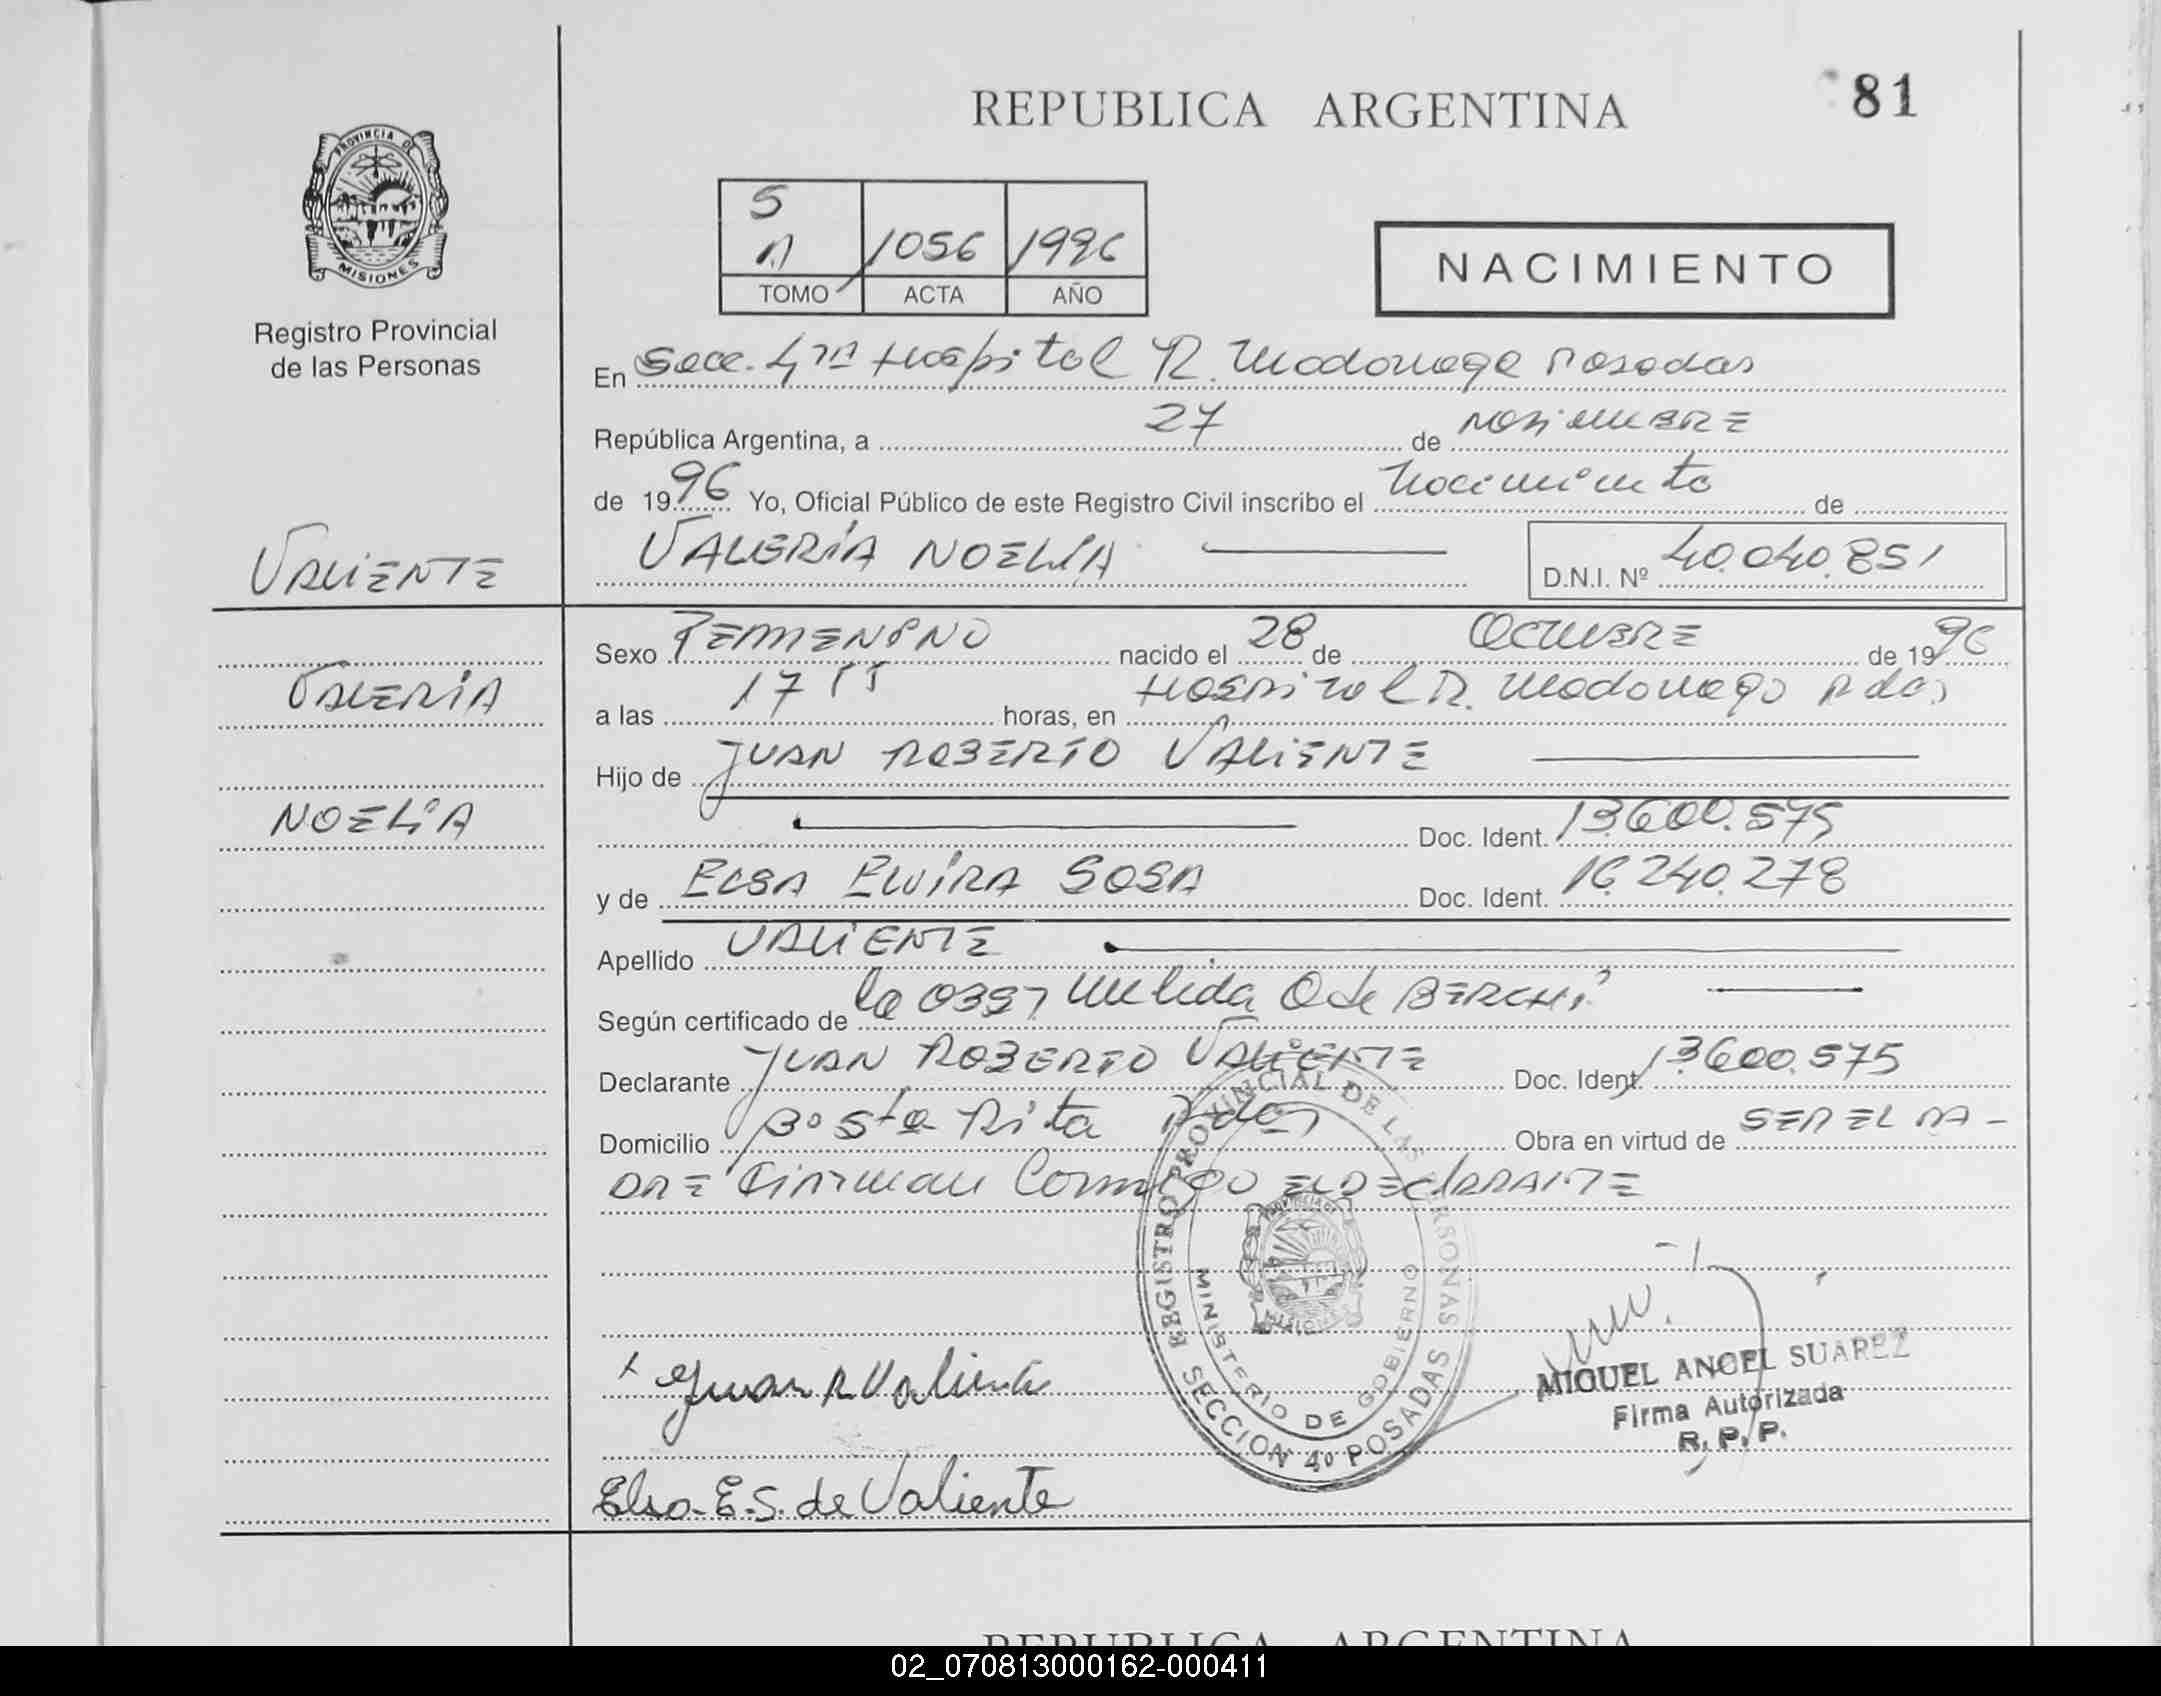 REPUBLICA ARGENTINA
81
PROVINCIA DE
MISIONES
Registro Provincial
de las Personas
5
A
1056
1996
TOMO
ACTA
AÑO
NACIMIENTO
En Secc. 4ta Hospital R. Madariaga Posadas
República Argentina, a 27 de NOVIEMBRE
de 1996 Yo, Oficial Público de este Registro Civil inscribo el Nacimiento de
VALIENTE
VALERIA NOELIA
D.N.I. Nº 40.040.851
VALERIA
NOELIA
Sexo FEMENINO nacido el 28 de OCTUBRE de 1996
a las 17 horas, en HOSPITAL R. Madariaga Pdas
Hijo de JUAN ROBERTO VALIENTE
Doc. Ident. 13.600.575
y de ELSA ELVIRA SOSA Doc. Ident. 16.240.278
Apellido VALIENTE
Según certificado de la Obst
Declarante JUAN ROBERTO VALIENTE Doc. Ident. 13.600.575
Domicilio Bo Sta Rita Pdas Obra en virtud de SER EL PA-
DRE Firman Conmigo EL DECLARANTE
REGISTRO PROVINCIAL DE LAS PERSONAS
MINISTERIO DE GOBIERNO
SECCION 4º POSADAS
Juan R Valiente
MIGUEL ANGEL SUAREZ
Firma Autorizada
R. P. P.
Elsa E.S. de Valiente
REPUBLICA ARGENTINA
02_070813000162-000411